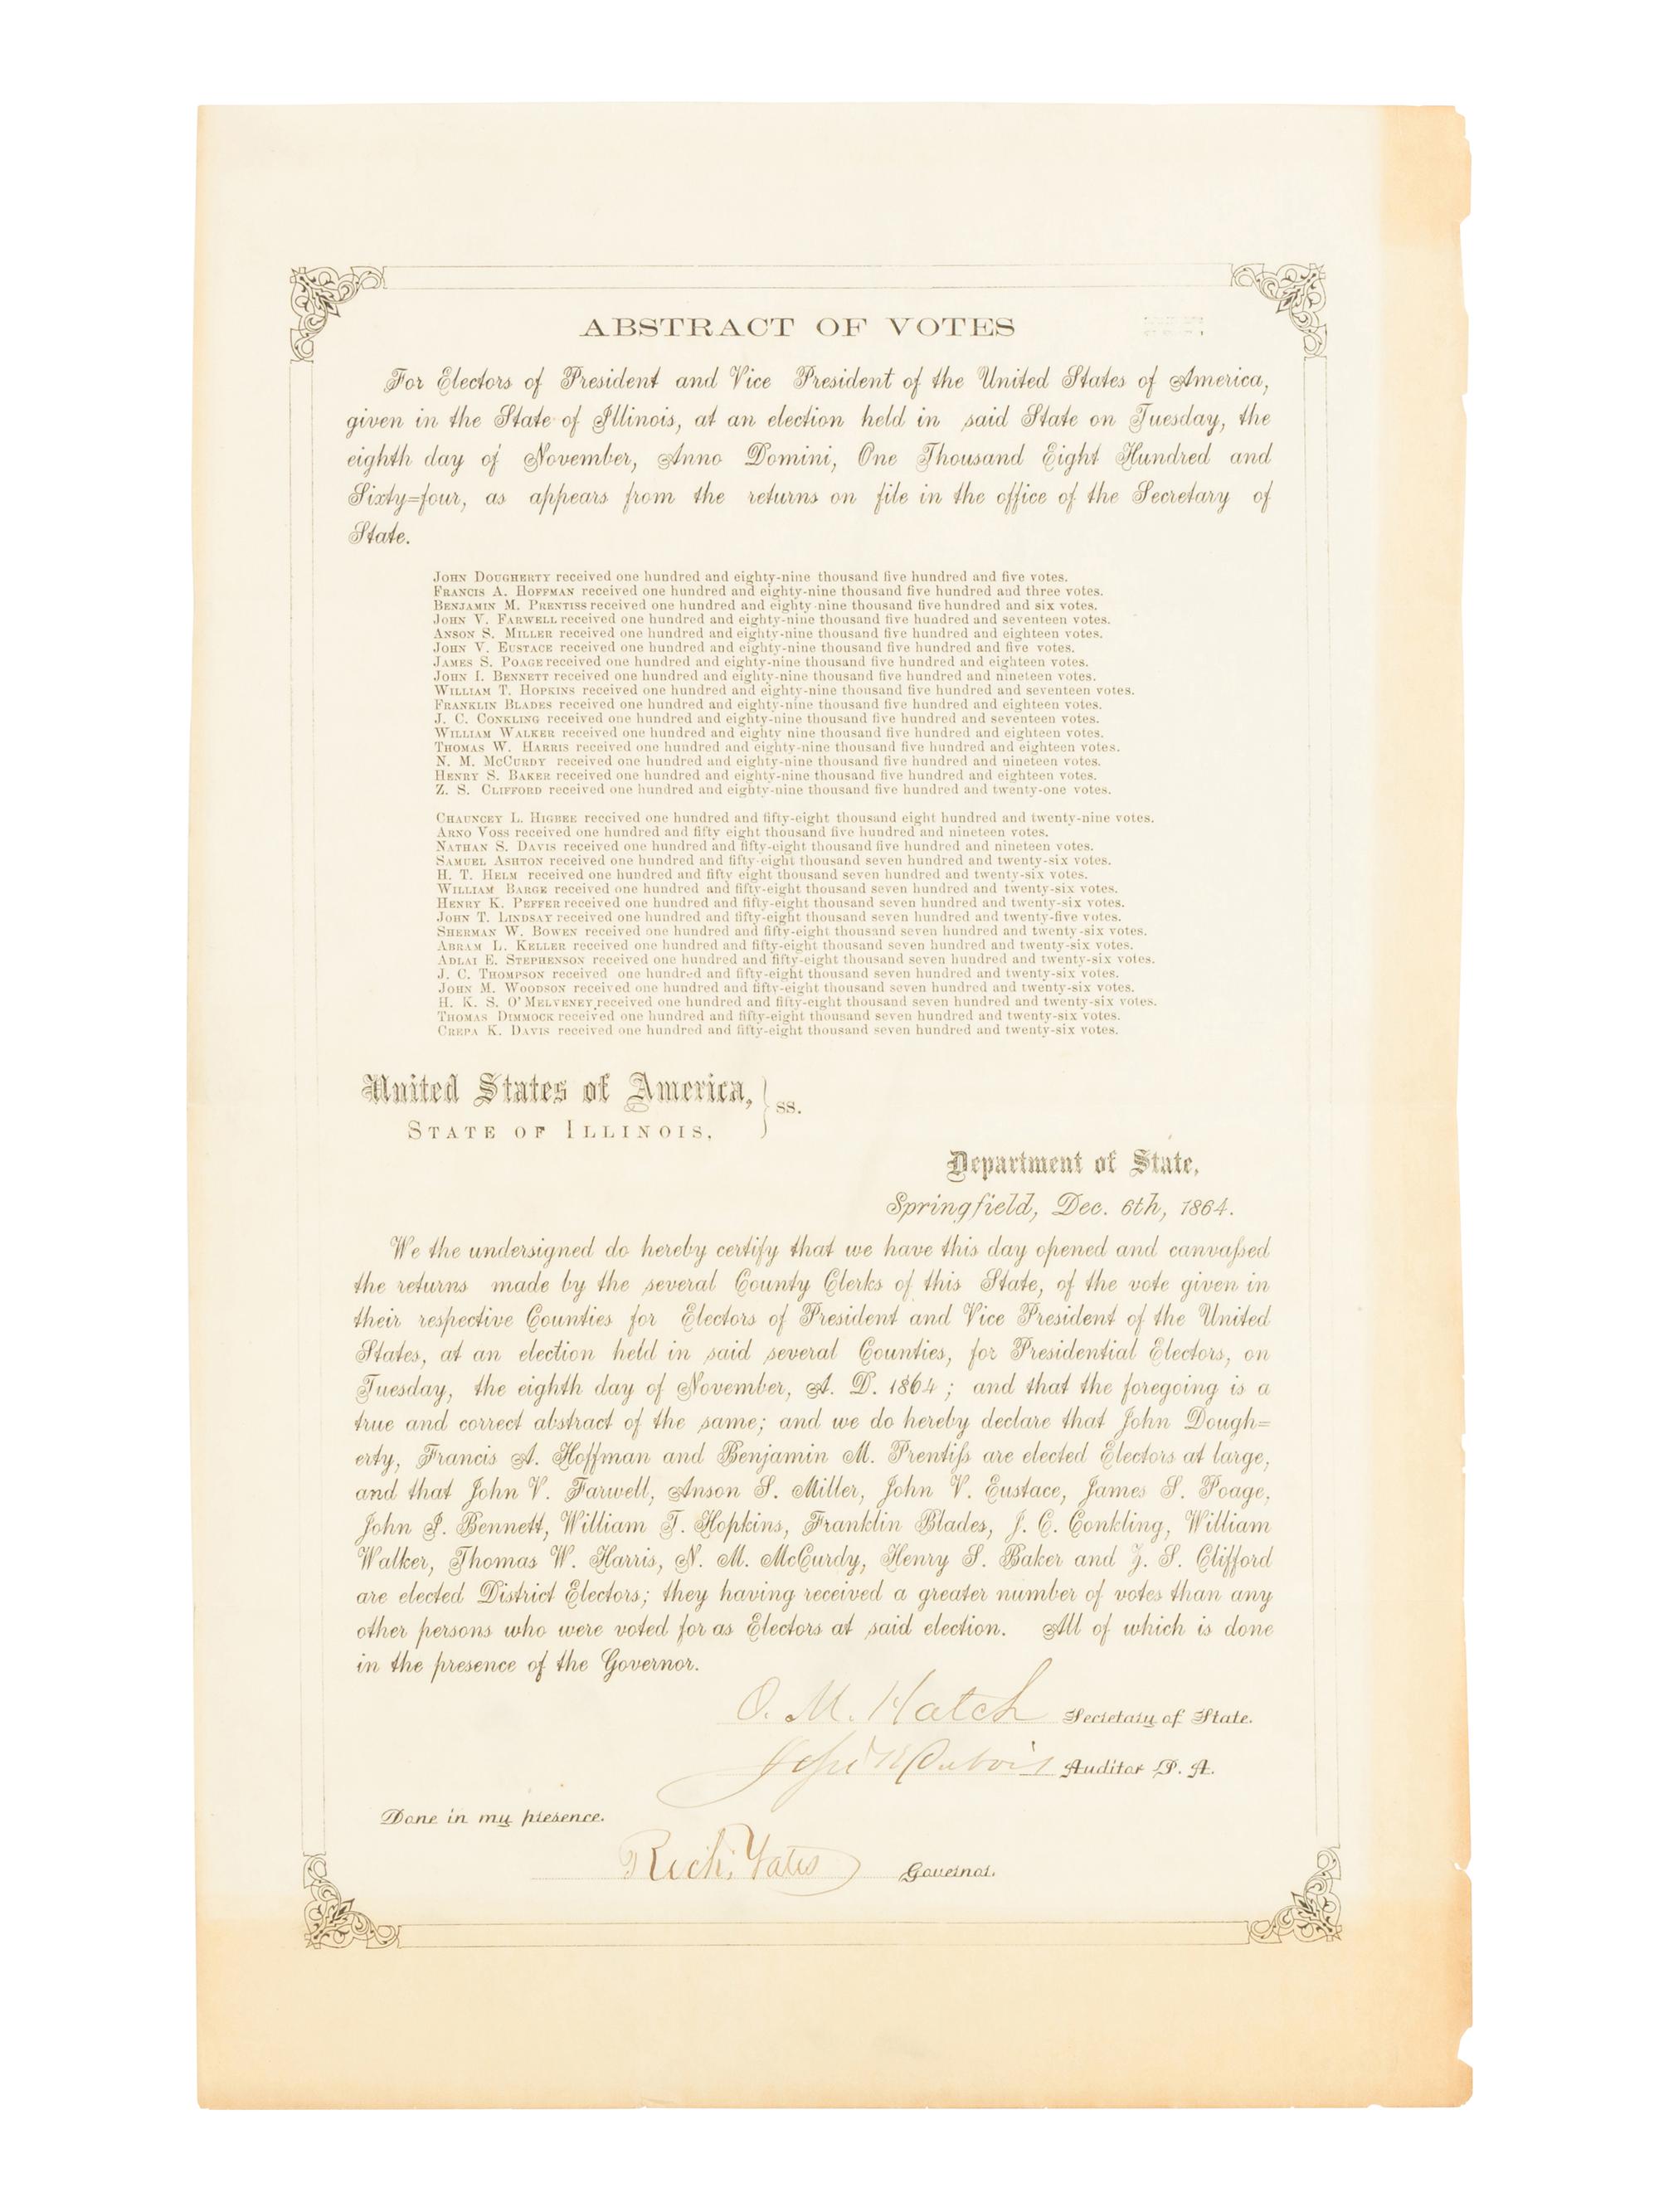 ABSTRACT OF VOTES
For Electors of President and Vice President of the United States of America,
given in the State of Illinois, at an election held in said State on Tuesday, the
eighth day of November, Anno Domini, One Thousand Eight Hundred and
Sixty=four, as appears from the returns on file in the office of the Secretary of
State.
JOHN DOUGHERTY received one hundred and eighty-nine thousand five hundred and five votes.
FRANCIS A. HOFFMAN received one hundred and eighty-nine thousand five hundred and three votes.
BENJAMIN M. PRENTISS received one hundred and eighty-nine thousand five hundred and six votes.
JOHN V. FARWELL received one hundred and eighty-nine thousand five hundred and seventeen votes.
ANSON S. MILLER received one hundred and eighty-nine thousand five hundred and eighteen votes.
JOHN V. EUSTACE received one hundred and eighty-nine thousand five hundred and five votes.
JAMES S. POAGE received one hundred and eighty-nine thousand five hundred and eighteen votes.
JOHN I. BENNETT received one hundred and eighty-nine thousand five hundred and nineteen votes.
WILLIAM T. HOPKINS received one hundred and eighty-nine thousand five hundred and seventeen votes.
FRANKLIN BLADES received one hundred and eighty-nine thousand five hundred and eighteen votes.
J. C. CONKLING received one hundred and eighty-nine thousand five hundred and seventeen votes.
WILLIAM WALKER received one hundred and eighty nine thousand five hundred and eighteen votes.
THOMAS W. HARRIS received one hundred and eighty-nine thousand five hundred and eighteen votes.
N. M. MCCURDY received one hundred and eighty-nine thousand five hundred and nineteen votes.
HENRY S. BAKER received one hundred and eighty-nine thousand five hundred and eighteen votes.
Z. S. CLIFFORD received one hundred and eighty-nine thousand five hundred and twenty-one votes.
CHAUNCEY L. HIGBEE received one hundred and fifty-eight thousand eight hundred and twenty-nine votes.
ARNO VOSS received one hundred and fifty eight thousand five hundred and nineteen votes.
NATHAN S. DAVIS received one hundred and fifty-eight thousand five hundred and nineteen votes.
SAMUEL ASHTON received one hundred and fifty-eight thousand seven hundred and twenty-six votes.
H. T. HELM received one hundred and fifty eight thousand seven hundred and twenty-six votes.
WILLIAM BARGE received one hundred and fifty-eight thousand seven hundred and twenty-six votes.
HENRY K. PEFFER received one hundred and fifty-eight thousand seven hundred and twenty-six votes.
JOHN T. LINDSAY received one hundred and fifty-eight thousand seven hundred and twenty-five votes.
SHERMAN W. BOWEN received one hundred and fifty-eight thousand seven hundred and twenty-six votes.
ABRAM L. KELLER received one hundred and fifty-eight thousand seven hundred and twenty-six votes.
ADLAI E. STEPHENSON received one hundred and fifty-eight thousand seven hundred and twenty-six votes.
J. C. THOMPSON received one hundred and fifty-eight thousand seven hundred and twenty-six votes.
JOHN M. WOODSON received one hundred and fifty-eight thousand seven hundred and twenty-six votes.
H. K. S. O'MELVENEY, received one hundred and fifty-eight thousand seven hundred and twenty-six votes.
THOMAS DIMMOCK received one hundred and fifty-eight thousand seven hundred and twenty-six votes.
CREPA K. DAVIS received one hundred and fifty-eight thousand seven hundred and twenty-six votes.
United States of America, } ss.
STATE OF ILLINOIS,
Department of State,
Springfield, Dec. 6th, 1864.
We the undersigned do hereby certify that we have this day opened and canvaſsed
the returns made by the several County Clerks of this State, of the vote given in
their respective Counties for Electors of President and Vice President of the United
States, at an election held in said several Counties, for Presidential Electors, on
Tuesday, the eighth day of November, A. D. 1864; and that the foregoing is a
true and correct abstract of the same; and we do hereby declare that John Dough=
erty, Francis A. Hoffman and Benjamin M. Prentiſs are elected Electors at large,
and that John V. Farwell, Anson S. Miller, John V. Eustace, James S. Poage,
John I. Bennett, William T. Hopkins, Franklin Blades, J. C. Conkling, William
Walker, Thomas W. Harris, N. M. McCurdy, Henry S. Baker and Z. S. Clifford
are elected District Electors; they having received a greater number of votes than any
other persons who were voted for as Electors at said election. All of which is done
in the presence of the Governor.
O. M. Hatch Secretary of State.
Jesse K Dubois Auditor P. A.
Done in my presence.
Rich: Yates Governor.